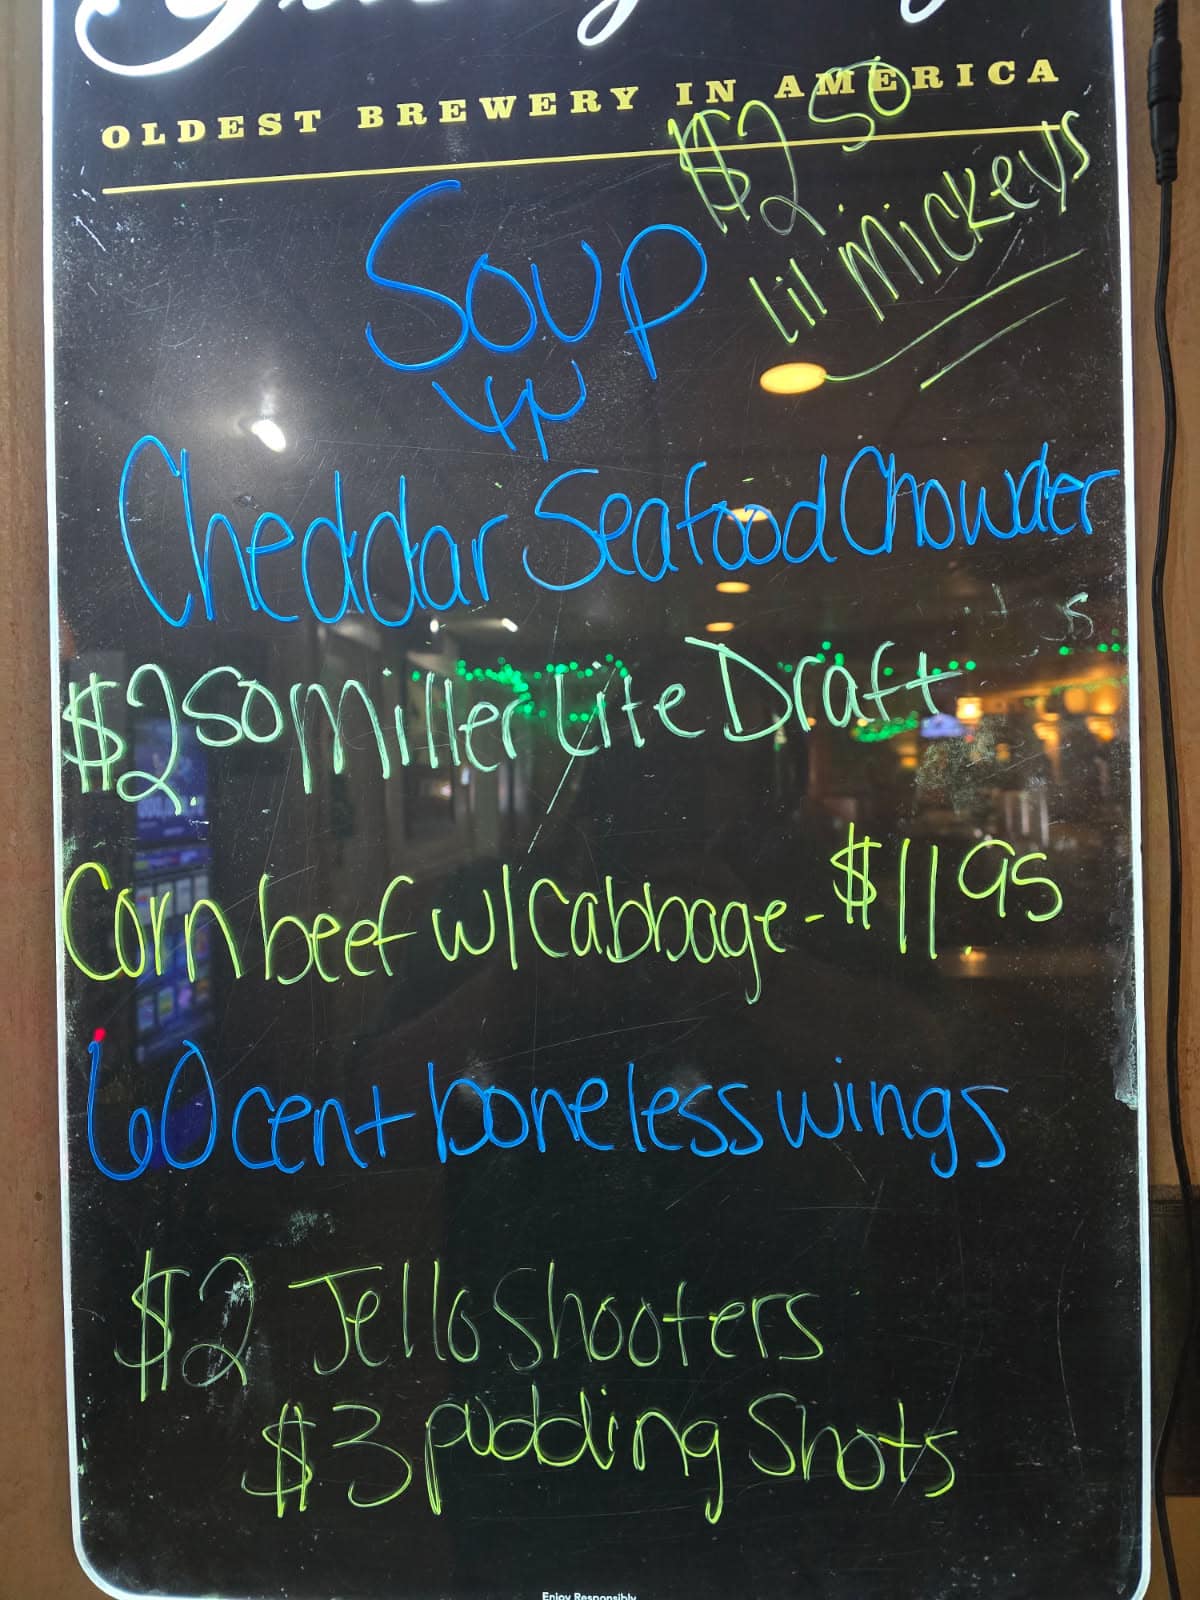 OLDEST BREWERY IN AMERICA
$2 50
lil Mickeys
Soup
Cheddar Seafood Chowder
$2 50 Miller Lite Draft
Corn beef w/ Cabbage - $11 95
60 cent boneless wings
$2 Jello shooters
$3 pudding Shots
Enjoy Responsibly